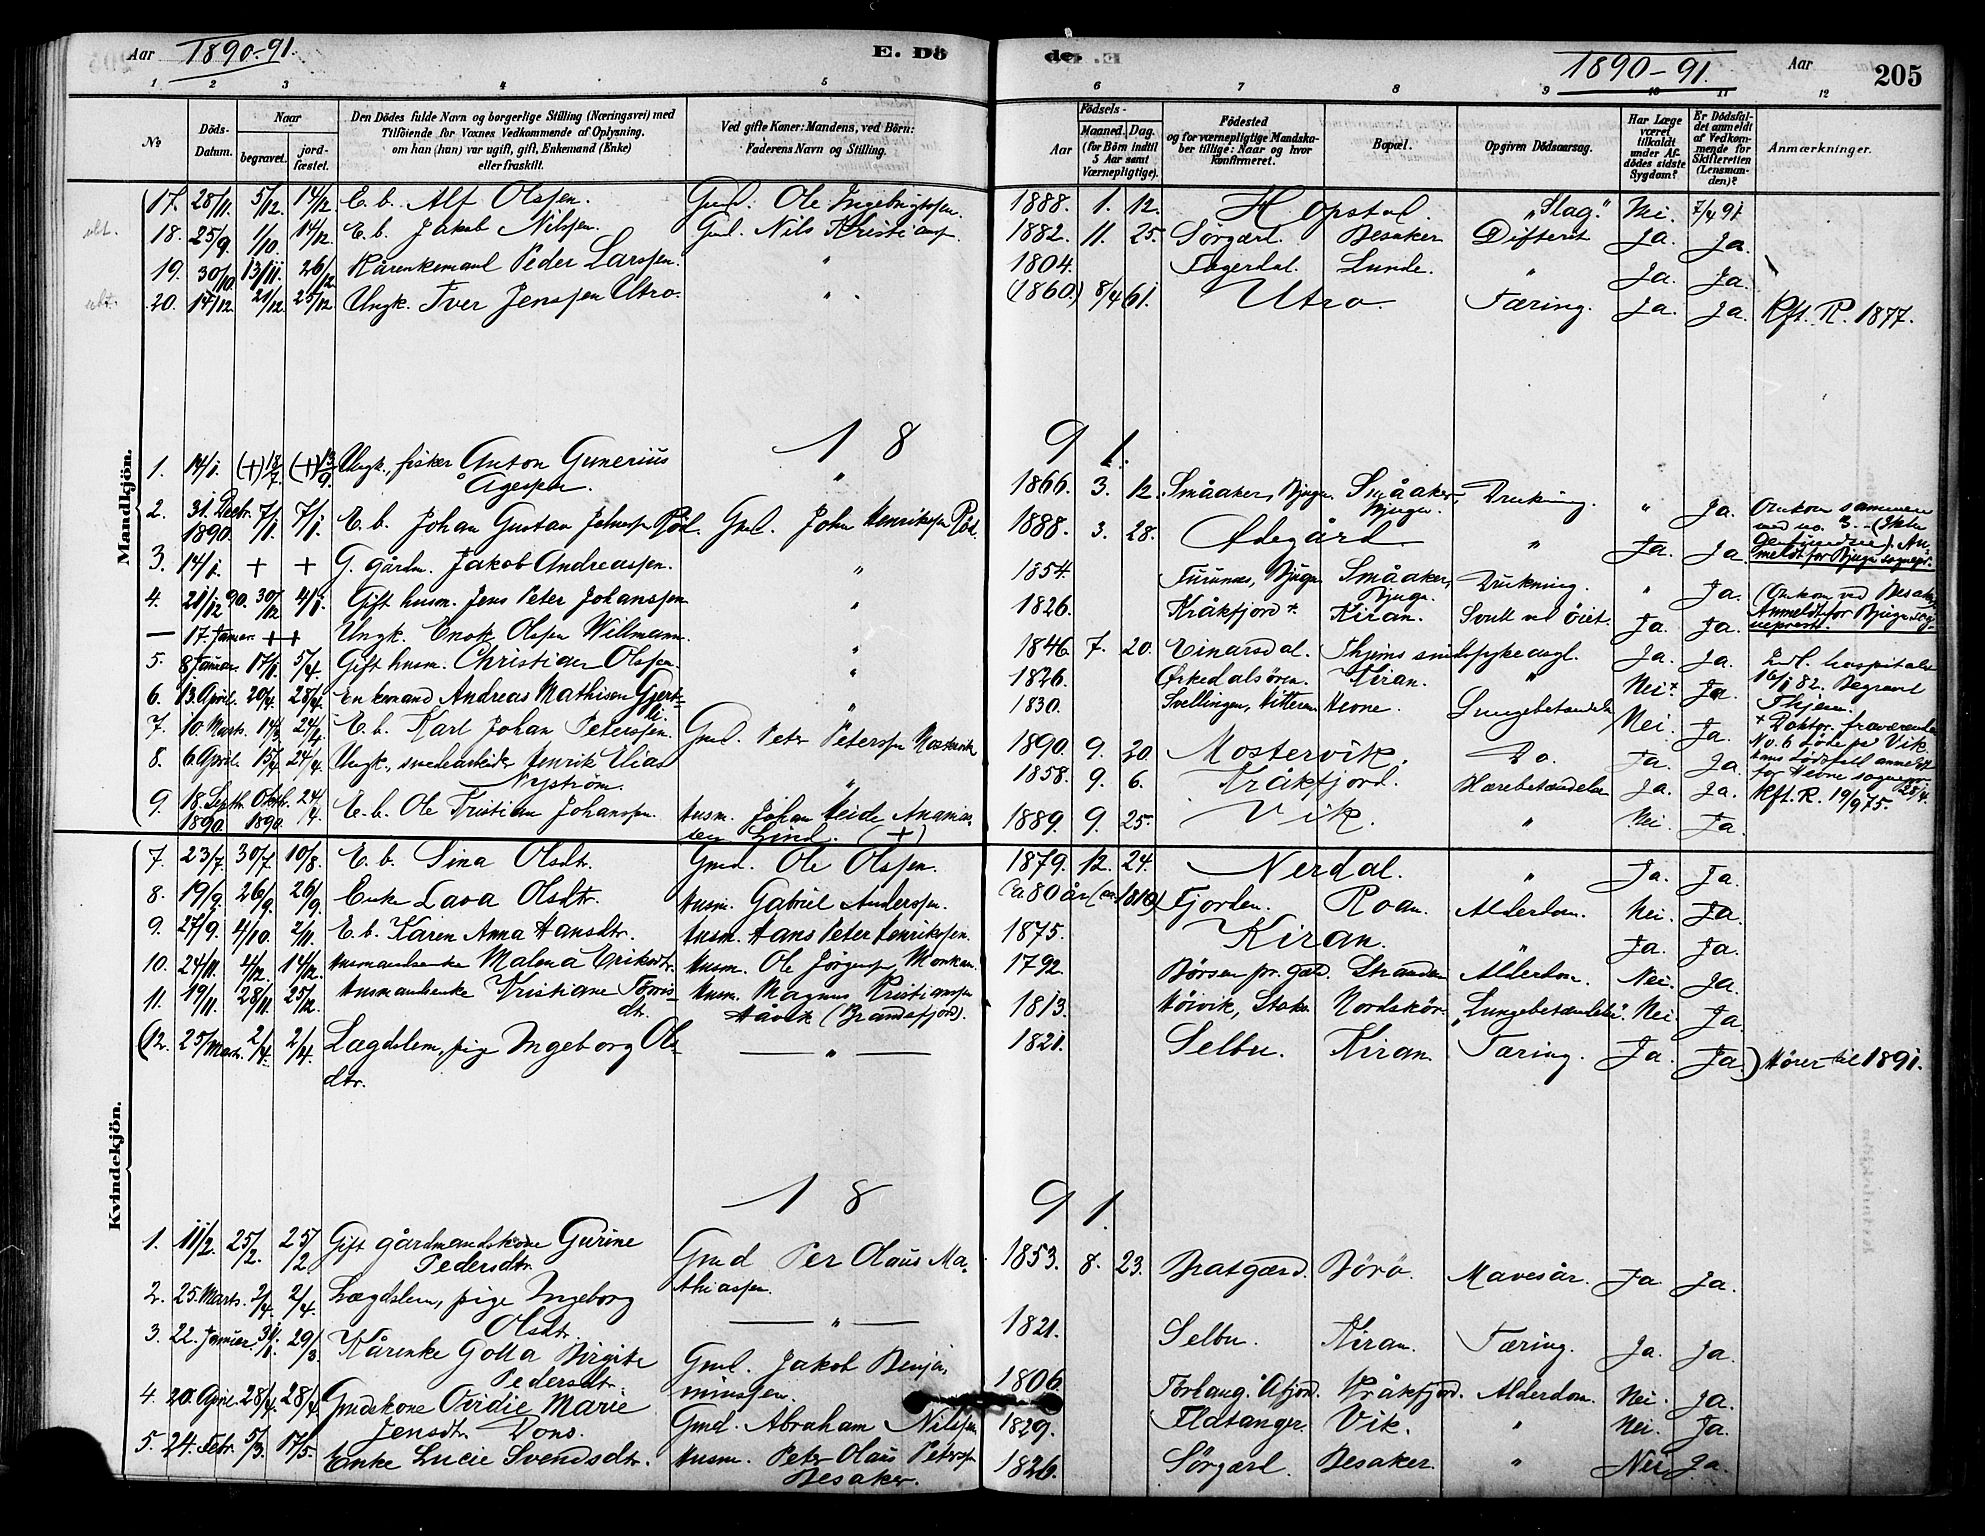 Aar 1890-91.
E. Dö
de.
1890-91.
Aar
205
1 2 3 4 5
6 7 8 9 10 11 12
No
Döds-Datum.
Naar
begravet.
jord-fæstet.
Den Dödes fulde Navn og borgerlige Stilling (Næringsvei) med
Tilföiende for Voxnes Vedkommende af Oplysning,
om han (hun) var ugift, gift, Enkemand (Enke)
eller fraskilt.
Ved gifte Koner: Mandens, ved Börn:
Faderens Navn og Stilling.
Födsels-
Aar
Maaned. Dag.
(for Börn indtil
5 Aar samt
Værnepligtige).
Födested
og for værnepligtige Mandska-
ber tillige: Naar og hvor
konfirmeret.
Bopæl.
Opgiven Dödsaarsag.
Har Læge
været
tilkaldt
under Af-
dödes sidste
Sygdom?
Er Dödsfal-
det anmeldt
af Vedkom-
mende for
Skifteretten
(Lensman-
den)?
Anmærkninger.
Mandkjön.
17. 28/11. 5/12. 14/12. E. b. Alf Olssen. Gmd. Ole Ingebrigtssen. 1888. 1. 12. Hopstad. "Slag." Nei. 7/4 91.
18. 25/9. 1/10. 14/12. E. b. Jakob Nilssen. Gmd. Nils Kristians. 1882. 11. 25. Sørgærd. Besaker Difterit Ja. Ja.
19. 30/10. 13/11. 26/12. Kårenkemand Peder Larssen. " 1804. Fagerdal. Lunde. " Ja. Ja.
20. 14/12. 21/12. 25/12. Ungk. Iver Jenssen Utro. " (1860.) 8/4 61. Utro. Tæring. Ja. Ja. Kft. R. 1877.
18 91.
1. 14/1. (+) 18/7. (+) 13/9. Ungk., fisker Anton Gunerius
Ågessen. " 1866. 3. 12. Småaker, Bjugn. Småaker, Bjugn. Drukning. " Ja. Omkom sammen
med no. 3.
2. 31. Decbr. 1890. 7/1. 7/1. E. b. Johan Gustav Johnsen Pöd. Gmd. John Henriksen Pöd. 1888. 3. 28. Ødegård. " Ja. Ja.
3. 14/1. + + G. gårdm. Jakob Andreassen. " 1854. Furunæs, Bjugn. Småaker, Bjugn. Drukning. " Ja. (Omkom ved Besaker.
Anmeldt for Bjugn sogneprest.
4. 21/12 90. 30/12 4/1. Gift husm. Jens Peter Johanssen " 1826. Kråkfjord. Kiran. Svull ved öiet. Ja. Ja.
— 17. Januar. + + Ungk. Enok Olssen Willmann. " 1846. 7. 20. Einarsdal. Thjems sindssygeasyl. Ja. Ja. hospitalet
16/1 82. Begravet
Thjem.
5. 8 Januar. 17/1. 5/4. Gift husm. Christian Olssen. " 1826. Ørkedalsören. Kiran. " Nei+ Ja + Doktor fraværende
6. 13. April. 20/4. 28/4. Enkemand Andreas Mathisen Gjert-
" 1830. Svellingen, Hitteren Hevne. Lungebetændelse Nei. Ja. No. 6 døde på Vik.
hans dödsfald anmeldt
for Hevne sognepr. 28/4.
7. 10. Marts. 14/3 24/4. E. b. Karl Johan Peterssen. Gmd. Peter Peterssen Mostervik 1890. 9. 20. Mostervik. Do. Ja. Ja.
8. 6 April. 15/4. 24/4. Ungk., smedarbeider Henrik Elias
Nyström. " 1858. 9. 6. Kråkfjord. Ja. Ja. Kft. R. 19/9 75.
9. 18. Septbr. 1890. Oktbr. 1890. 24/4. E. b. Ole Kristian Johanssen. Husm. Johan Heide Ananias-
sen Lind. (+) 1889. 9. 25. Vik. " Nei. Ja.
Kvindekjön.
7. 23/7. 30/7. 10/8. E. b. Lina Olsdtr. Gmd. Ole Olssen. 1879. 12. 24. Nerdal. " Ja. Ja.
8. 19/9. 26/9. 26/9. Enke Lava Olsdtr. Husm. Gabriel Anderssen. Ca 80 år (ca 1810) Fjorden. Roan. Alderdom. Nei. Ja.
9. 27/9. 4/10. 2/11. E. b. Karen Anna Hansdtr. Husm. Hans Peter Henrikssen. 1875. Kiran. " Ja. Ja.
10. 24/11. 4/12. 14/12. Husmandsenke Malena Eriksdtr. Husm. Ole Jørgens. Monkan. 1792. Börsen pr.gæld. Stranden Alderdom. Nei. Ja.
11. 19/11. 28/11. 25/12. Husmandsenke Kristiane Törris-
dtr. Husm. Magnus Kristianssen
Håvik (Brandsfjord). 1813. Höivik, Stoks. Nordskör. "Lungebetændelse". Nei. Ja.
(12. 25/Marts. 2/4. 2/4. Lægdslem, pige Ingeborg Ols-
dtr. — " — 1821. Selbu. Kiran. Tæring. Ja. Ja.) Hörer til 1891.
18 91.
1. 11/2. 25/2. 25/2. Gift gårdmandskone Gurine
Pedersdtr. Gmd Per Olaus Ma-
thiassen. 1853. 8. 23. Bratgærd. Börö. Mavesår. Ja. Ja.
2. 25. Marts. 2/4. 2/4. Lægdslem, pige Ingeborg
Olsdtr. — " — 1821. Selbu. Kiran. Tæring. Ja. Ja.
3. 22. Januar. 31/1. 29/3. Kårenke Golla Birgite
Pedersdtr. Gmd. Jakob Benja-
minssen. 1806. Törhaug. Åfjord. Kråkfjord. Alderdom. Nei. Ja.
4. 20. April. 28/4. 28/4. Gmdskone Ovidie Marie
Jensdtr. Dons. Gmd. Abraham Nilssen 1829. Flatanger. Vik. " Nei. Ja.
5. 24. Febr. 5/3. 17/5. Enke Lucie Svendsdtr. Husm. Peter Olaus Peterssen
Besaker. 1826. Sörgærd. Besaker. " Nei Ja.